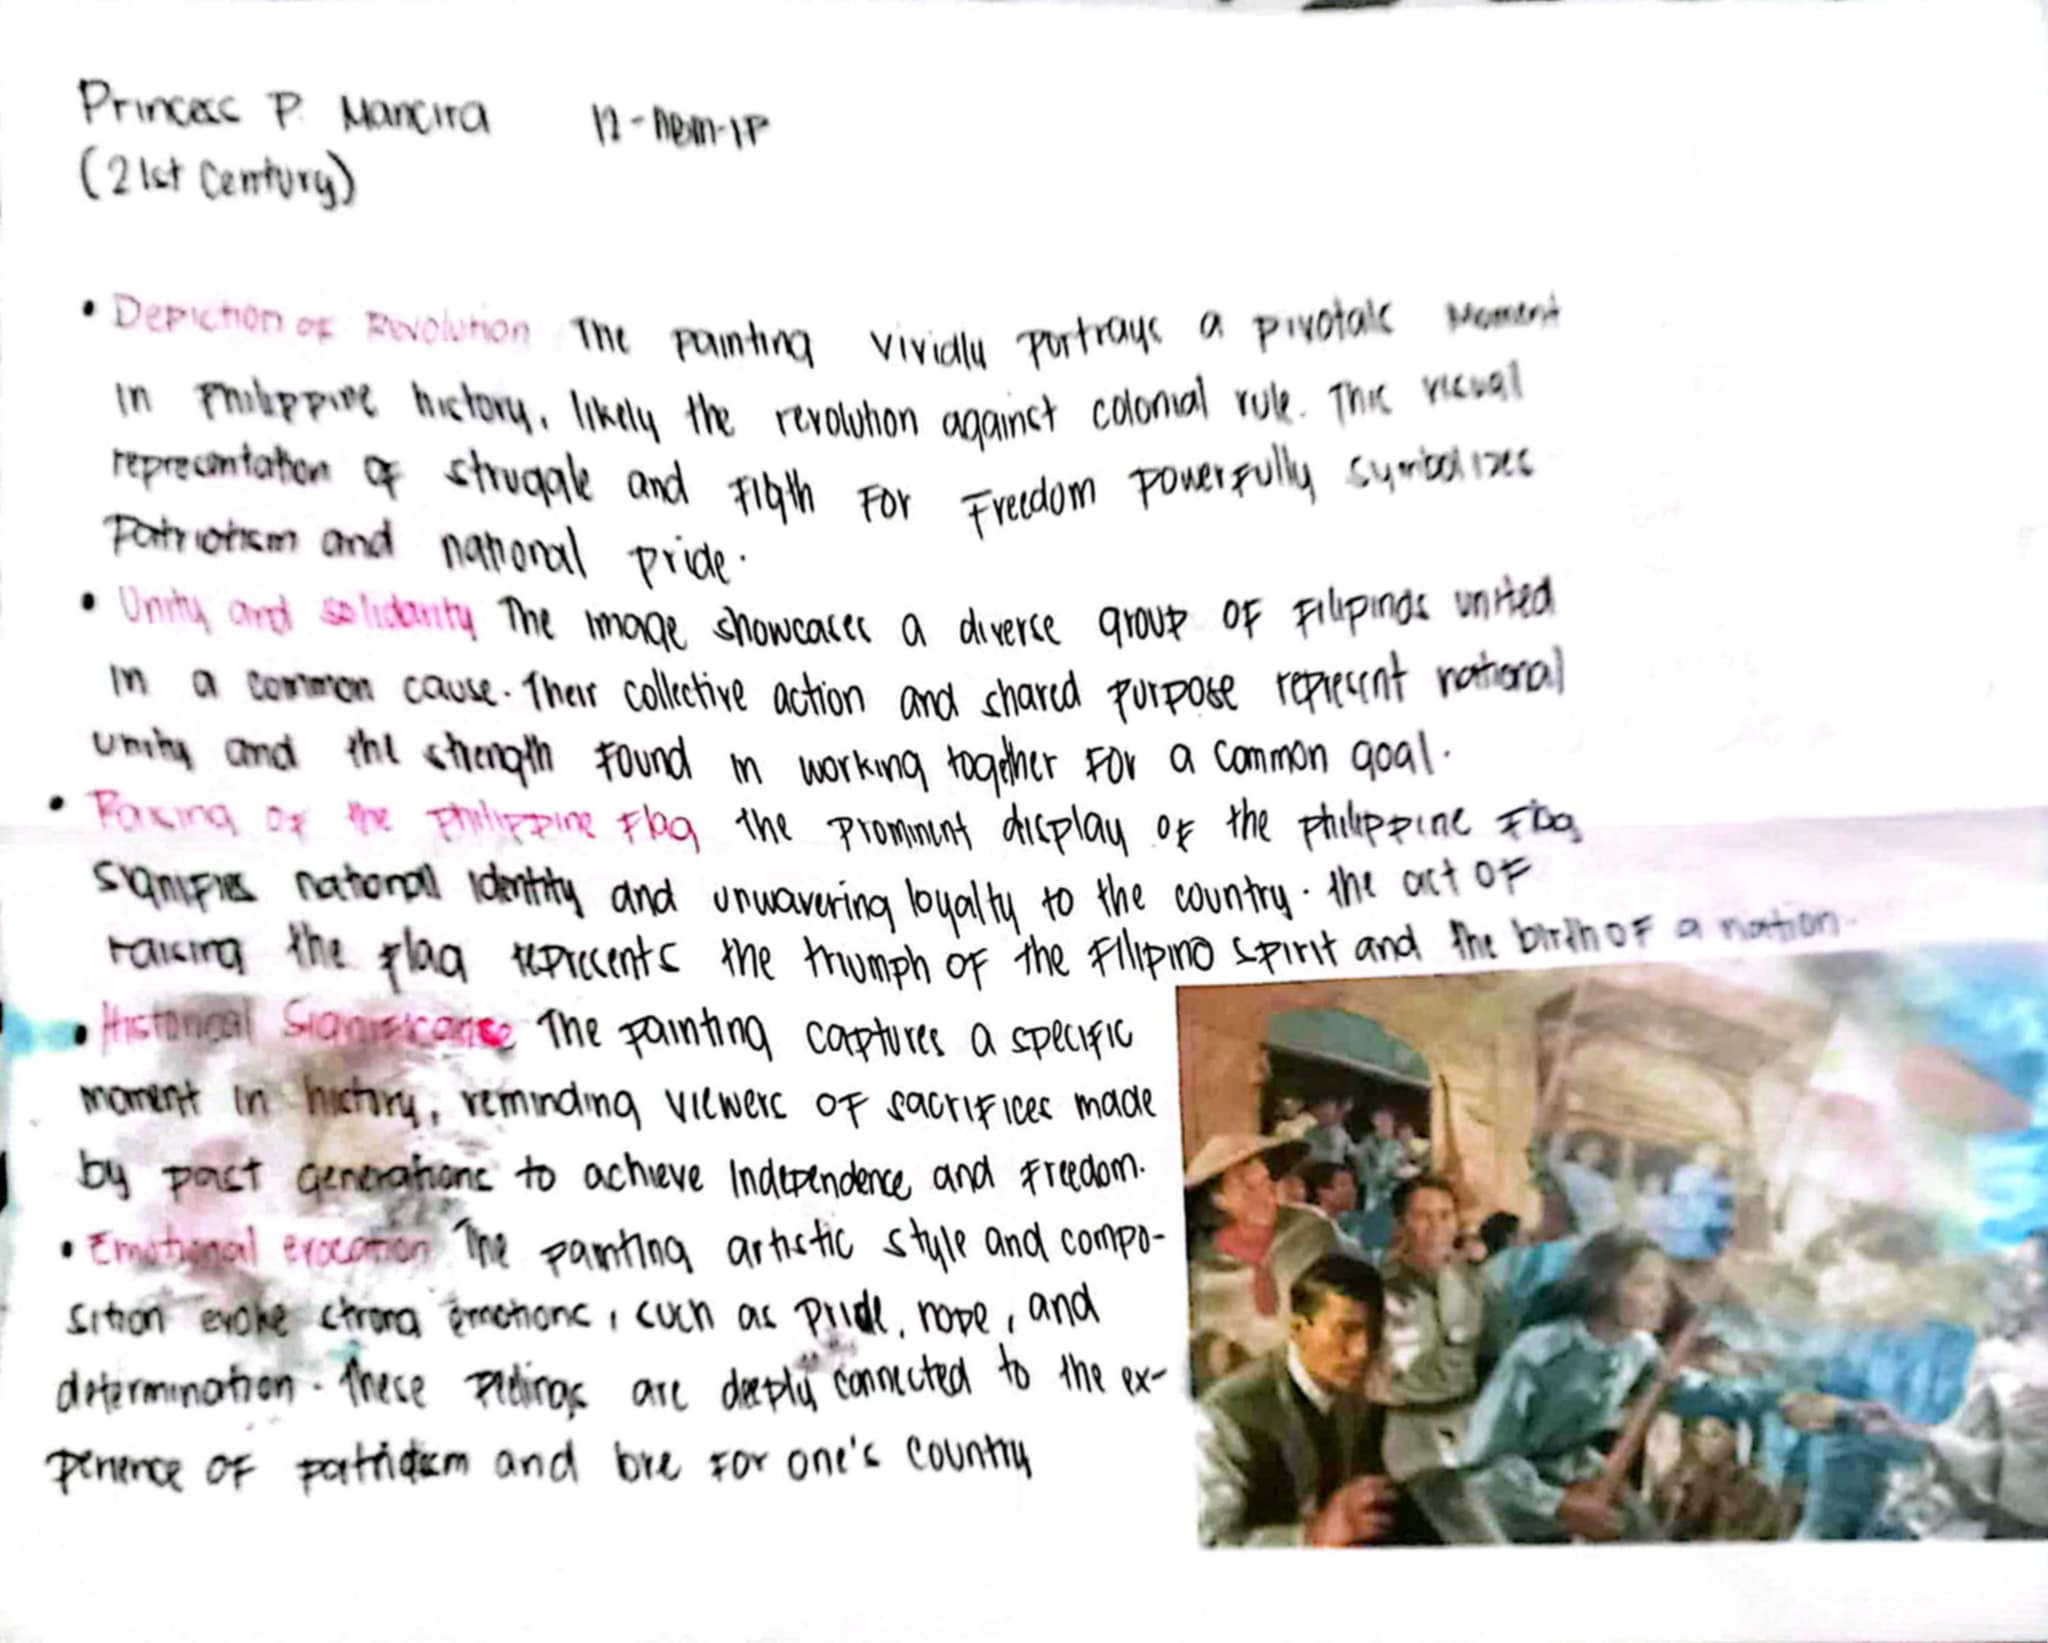 Princess P. Mancira 12-ABM-1P
(21st Century)
• Depiction of Revolution The painting vividly portrays a pivotals moment
in Philippine history, likely the revolution against colonial rule. This visual
representation of struggle and figth for Freedom powerfully symbolizes
Patriotism and national pride.
• Unity and solidarity The image showcases a diverse group of Filipinos united
in a common cause. Their collective action and shared purpose represent national
unity and the strength found in working together for a common goal.
• Raising of the Philippine Flag the prominent display of the philippine Flag
signifies national identity and unwavering loyalty to the country. the act of
raising the flag represents the triumph of the Filipino spirit and the birth of a nation.
• Historical Significance The painting captures a specific
moment in history, reminding viewers of sacrifices made
by past generations to achieve Independence and Freedom.
• Emotional evocation The painting artistic style and compo-
sition evoke strong emotions, such as pride, hope, and
determination. These feelings are deeply connected to the ex-
perience of patriotism and love for one's country